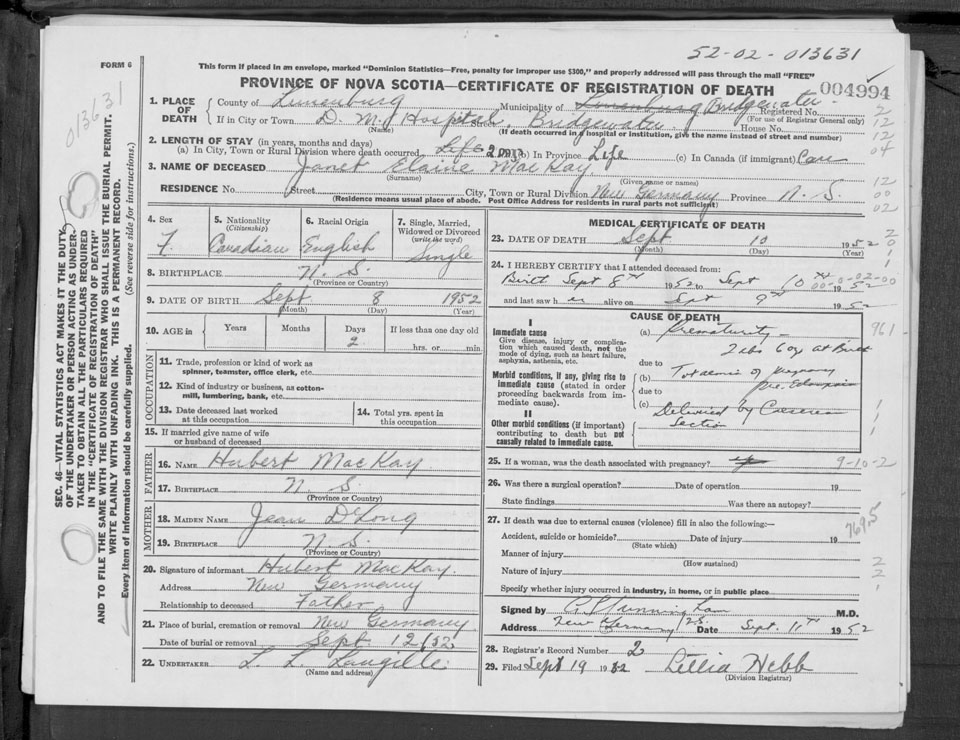 52-02-013631
FORM 6
This form if placed in an envelope, marked "Dominion Statistics—Free, penalty for improper use $300," and properly addressed will pass through the mail "FREE"
PROVINCE OF NOVA SCOTIA—CERTIFICATE OF REGISTRATION OF DEATH
004994
1. PLACE OF DEATH
County of Lunenburg Municipality of Lunenburg Bridgewater Registered No.
(For use of Registrar General only)
If in City or Town D. M. Hospital Street Bridgewater House No.
(Name) (If death occurred in a hospital or institution, give the name instead of street and number)
2. LENGTH OF STAY (in years, months and days)
(a) In City, Town or Rural Division where death occurred Life 2 days (b) In Province Life (c) In Canada (if immigrant) Can
3. NAME OF DECEASED Janet Elaine MacKay
(Surname) (Given name or names)
RESIDENCE No. Street City, Town or Rural Division New Germany Province N. S.
(Residence means usual place of abode. Post Office Address for residents in rural parts not sufficient)
4. Sex F.
5. Nationality (Citizenship) Canadian
6. Racial Origin English
7. Single, Married, Widowed or Divorced (write the word) Single
8. BIRTHPLACE N. S.
(Province or Country)
9. DATE OF BIRTH Sept 8 1952
(Month) (Day) (Year)
10. AGE in Years Months Days 2 If less than one day old
hrs. or min
OCCUPATION
11. Trade, profession or kind of work as spinner, teamster, office clerk, etc.
12. Kind of industry or business, as cotton-mill, lumbering, bank, etc.
13. Date deceased last worked at this occupation
14. Total yrs. spent in this occupation
15. If married give name of wife or husband of deceased
FATHER
16. NAME Hubert MacKay
17. BIRTHPLACE N. S.
(Province or Country)
MOTHER
18. MAIDEN NAME Jean DeLong
19. BIRTHPLACE N. S.
(Province or Country)
20. Signature of informant Hubert MacKay.
Address New Germany
Relationship to deceased Father
21. Place of burial, cremation or removal New Germany
Date of burial or removal Sept. 12/52
22. UNDERTAKER L. L. Langille
(Name and address)
MEDICAL CERTIFICATE OF DEATH
23. DATE OF DEATH Sept 10 1952
(Month) (Day) (Year)
24. I HEREBY CERTIFY that I attended deceased from:
Birth Sept 8th 1952 to Sept 10th 1952
00-0-02-00
and last saw her alive on Sept 9th 1952
CAUSE OF DEATH
I
Immediate cause
Give disease, injury or complication which caused death, not the mode of dying, such as heart failure, asphyxia, asthenia, etc.
(a) Prematurity -
2 lbs 6 oz at Birth
due to
Morbid conditions, if any, giving rise to immediate cause (stated in order proceeding backwards from immediate cause).
(b) Toxaemia of pregnancy
due to pre. Eclampsia
(c) Delivered by Caesarean Section
II
Other morbid conditions (if important) contributing to death but not causally related to immediate cause.
961
25. If a woman, was the death associated with pregnancy?
9-10-2
26. Was there a surgical operation? Date of operation 19
State findings Was there an autopsy?
27. If death was due to external causes (violence) fill in also the following:—
Accident, suicide or homicide? Date of injury 19
(State which)
769.5
Manner of injury
(How sustained)
Nature of injury
Specify whether injury occurred in industry, in home, or in public place
Signed by M.D.
Address New Germany N.S. Date Sept. 11th 1952
28. Registrar's Record Number 2
29. Filed Sept 19 1952 Lillia Webb
(Division Registrar)
SEC. 46—VITAL STATISTICS ACT MAKES IT THE DUTY
OF THE UNDERTAKER OR PERSON ACTING AS UNDER-
TAKER TO OBTAIN ALL THE PARTICULARS REQUIRED
IN THE "CERTIFICATE OF REGISTRATION OF DEATH"
AND TO FILE THE SAME WITH THE DIVISION REGISTRAR WHO SHALL ISSUE THE BURIAL PERMIT.
WRITE PLAINLY WITH UNFADING INK. THIS IS A PERMANENT RECORD.
Every item of information should be carefully supplied. (See reverse side for instructions.)
013631